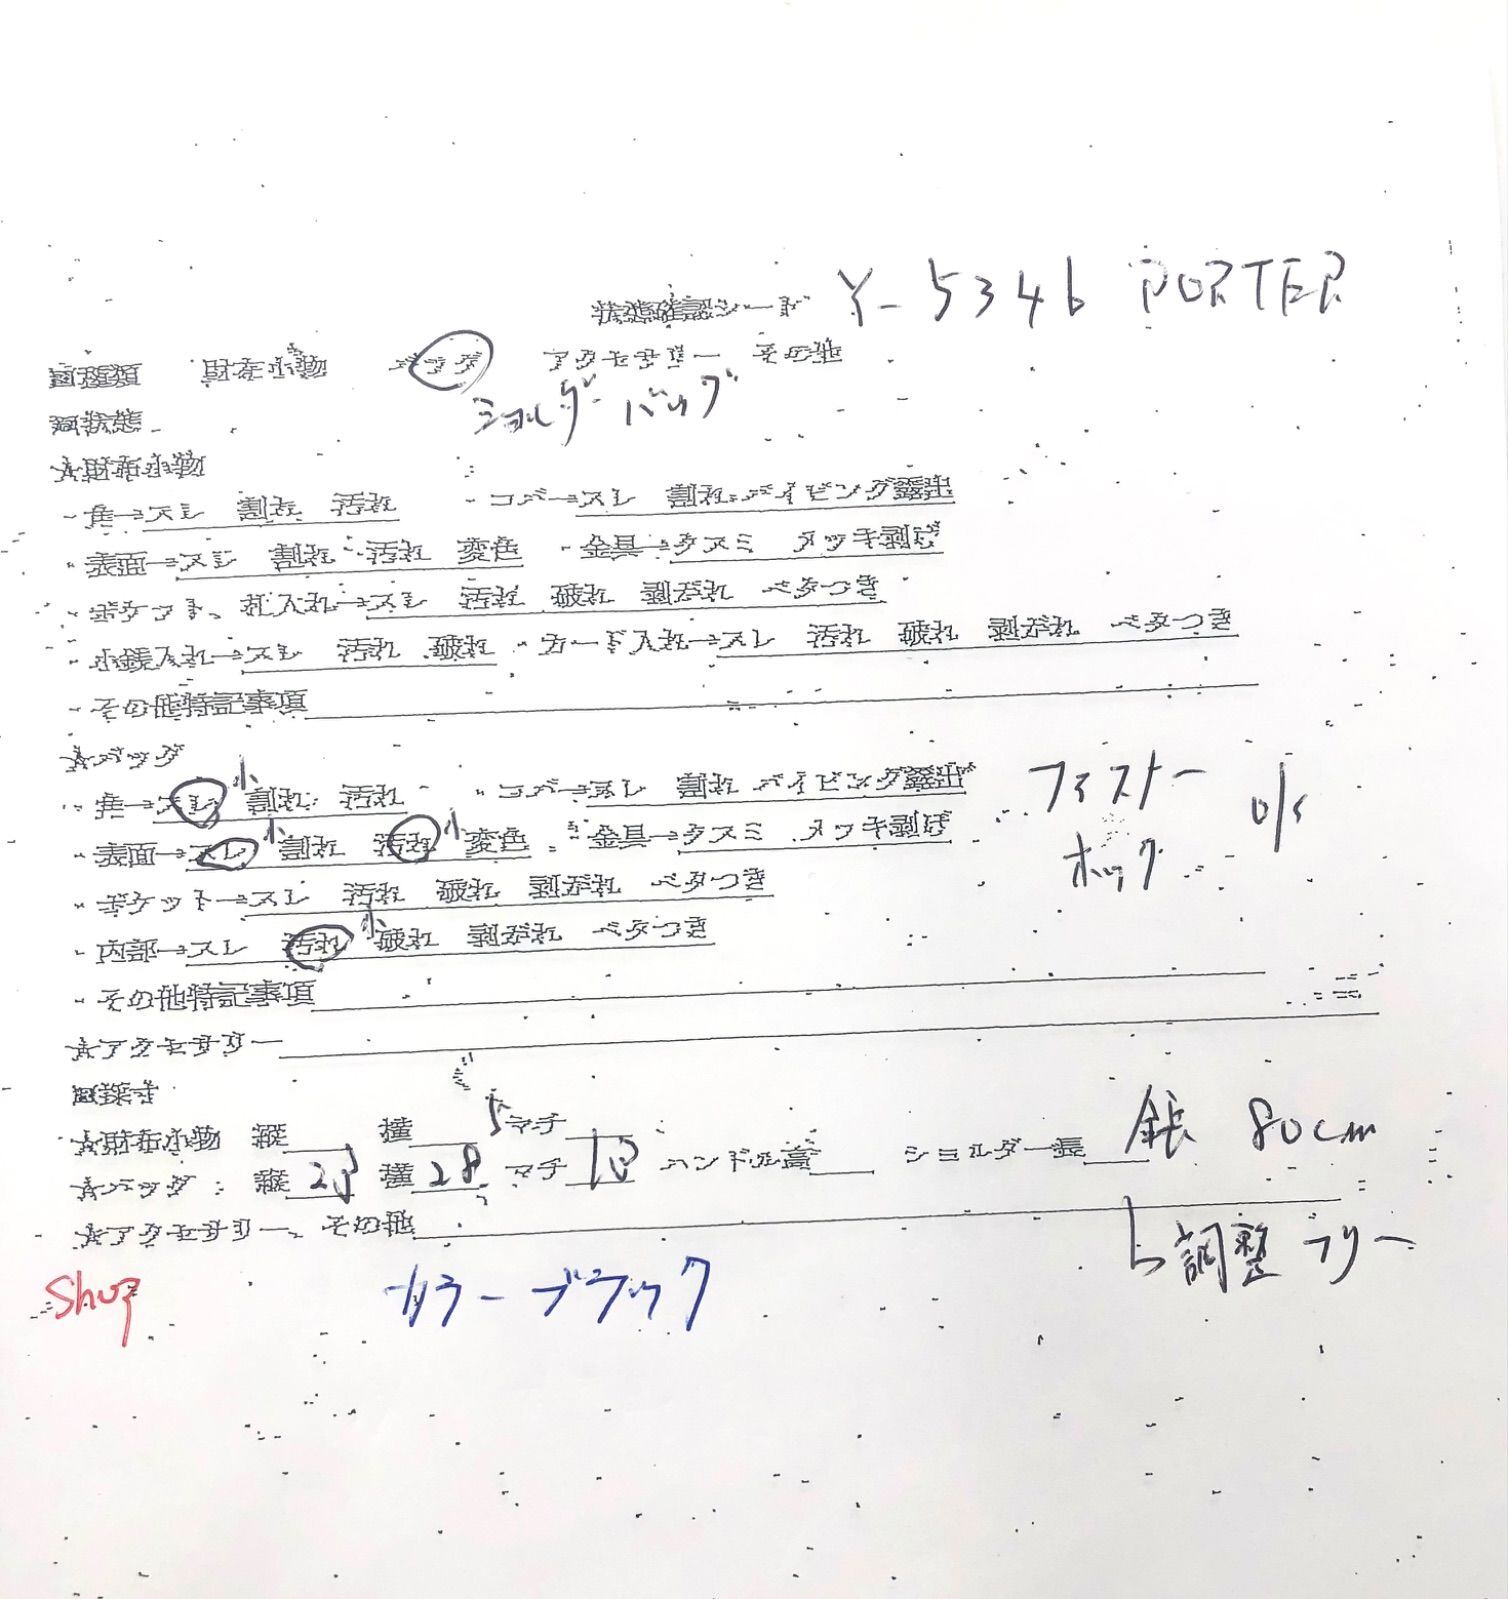 状態確認シート Y-5346 PORTER
■種類 財布小物 バッグ アクセサリー その他
■状態 ショルダーバッグ
★財布小物
・角→スレ 割れ 汚れ ・コバ→スレ 割れ パイピング露出
・表面→スレ 割れ 汚れ 変色 ・金具→クスミ メッキ剥げ
・ポケット、札入れ→スレ 汚れ 破れ 剥がれ ベタつき
・小銭入れ→スレ 汚れ 破れ ・カード入れ→スレ 汚れ 破れ 剥がれ ベタつき
・その他特記事項
★バッグ
・角→スレ 小 割れ 汚れ ・コバ→スレ 割れ パイピング露出 ファスナー
・表面→スレ 小 割れ 汚れ 小 変色 ・金具→クスミ メッキ剥げ ホック
・ポケット→スレ 汚れ 破れ 剥がれ ベタつき
・内部→スレ 汚れ 小 破れ 剥がれ ベタつき
・その他特記事項
★アクセサリー
■採寸
★財布小物 縦 横 マチ
★バッグ:縦 23 横 28 マチ ハンドル高 ショルダー長 80cm
★アクセサリー、その他 調整フリー
Shop カラーブラック